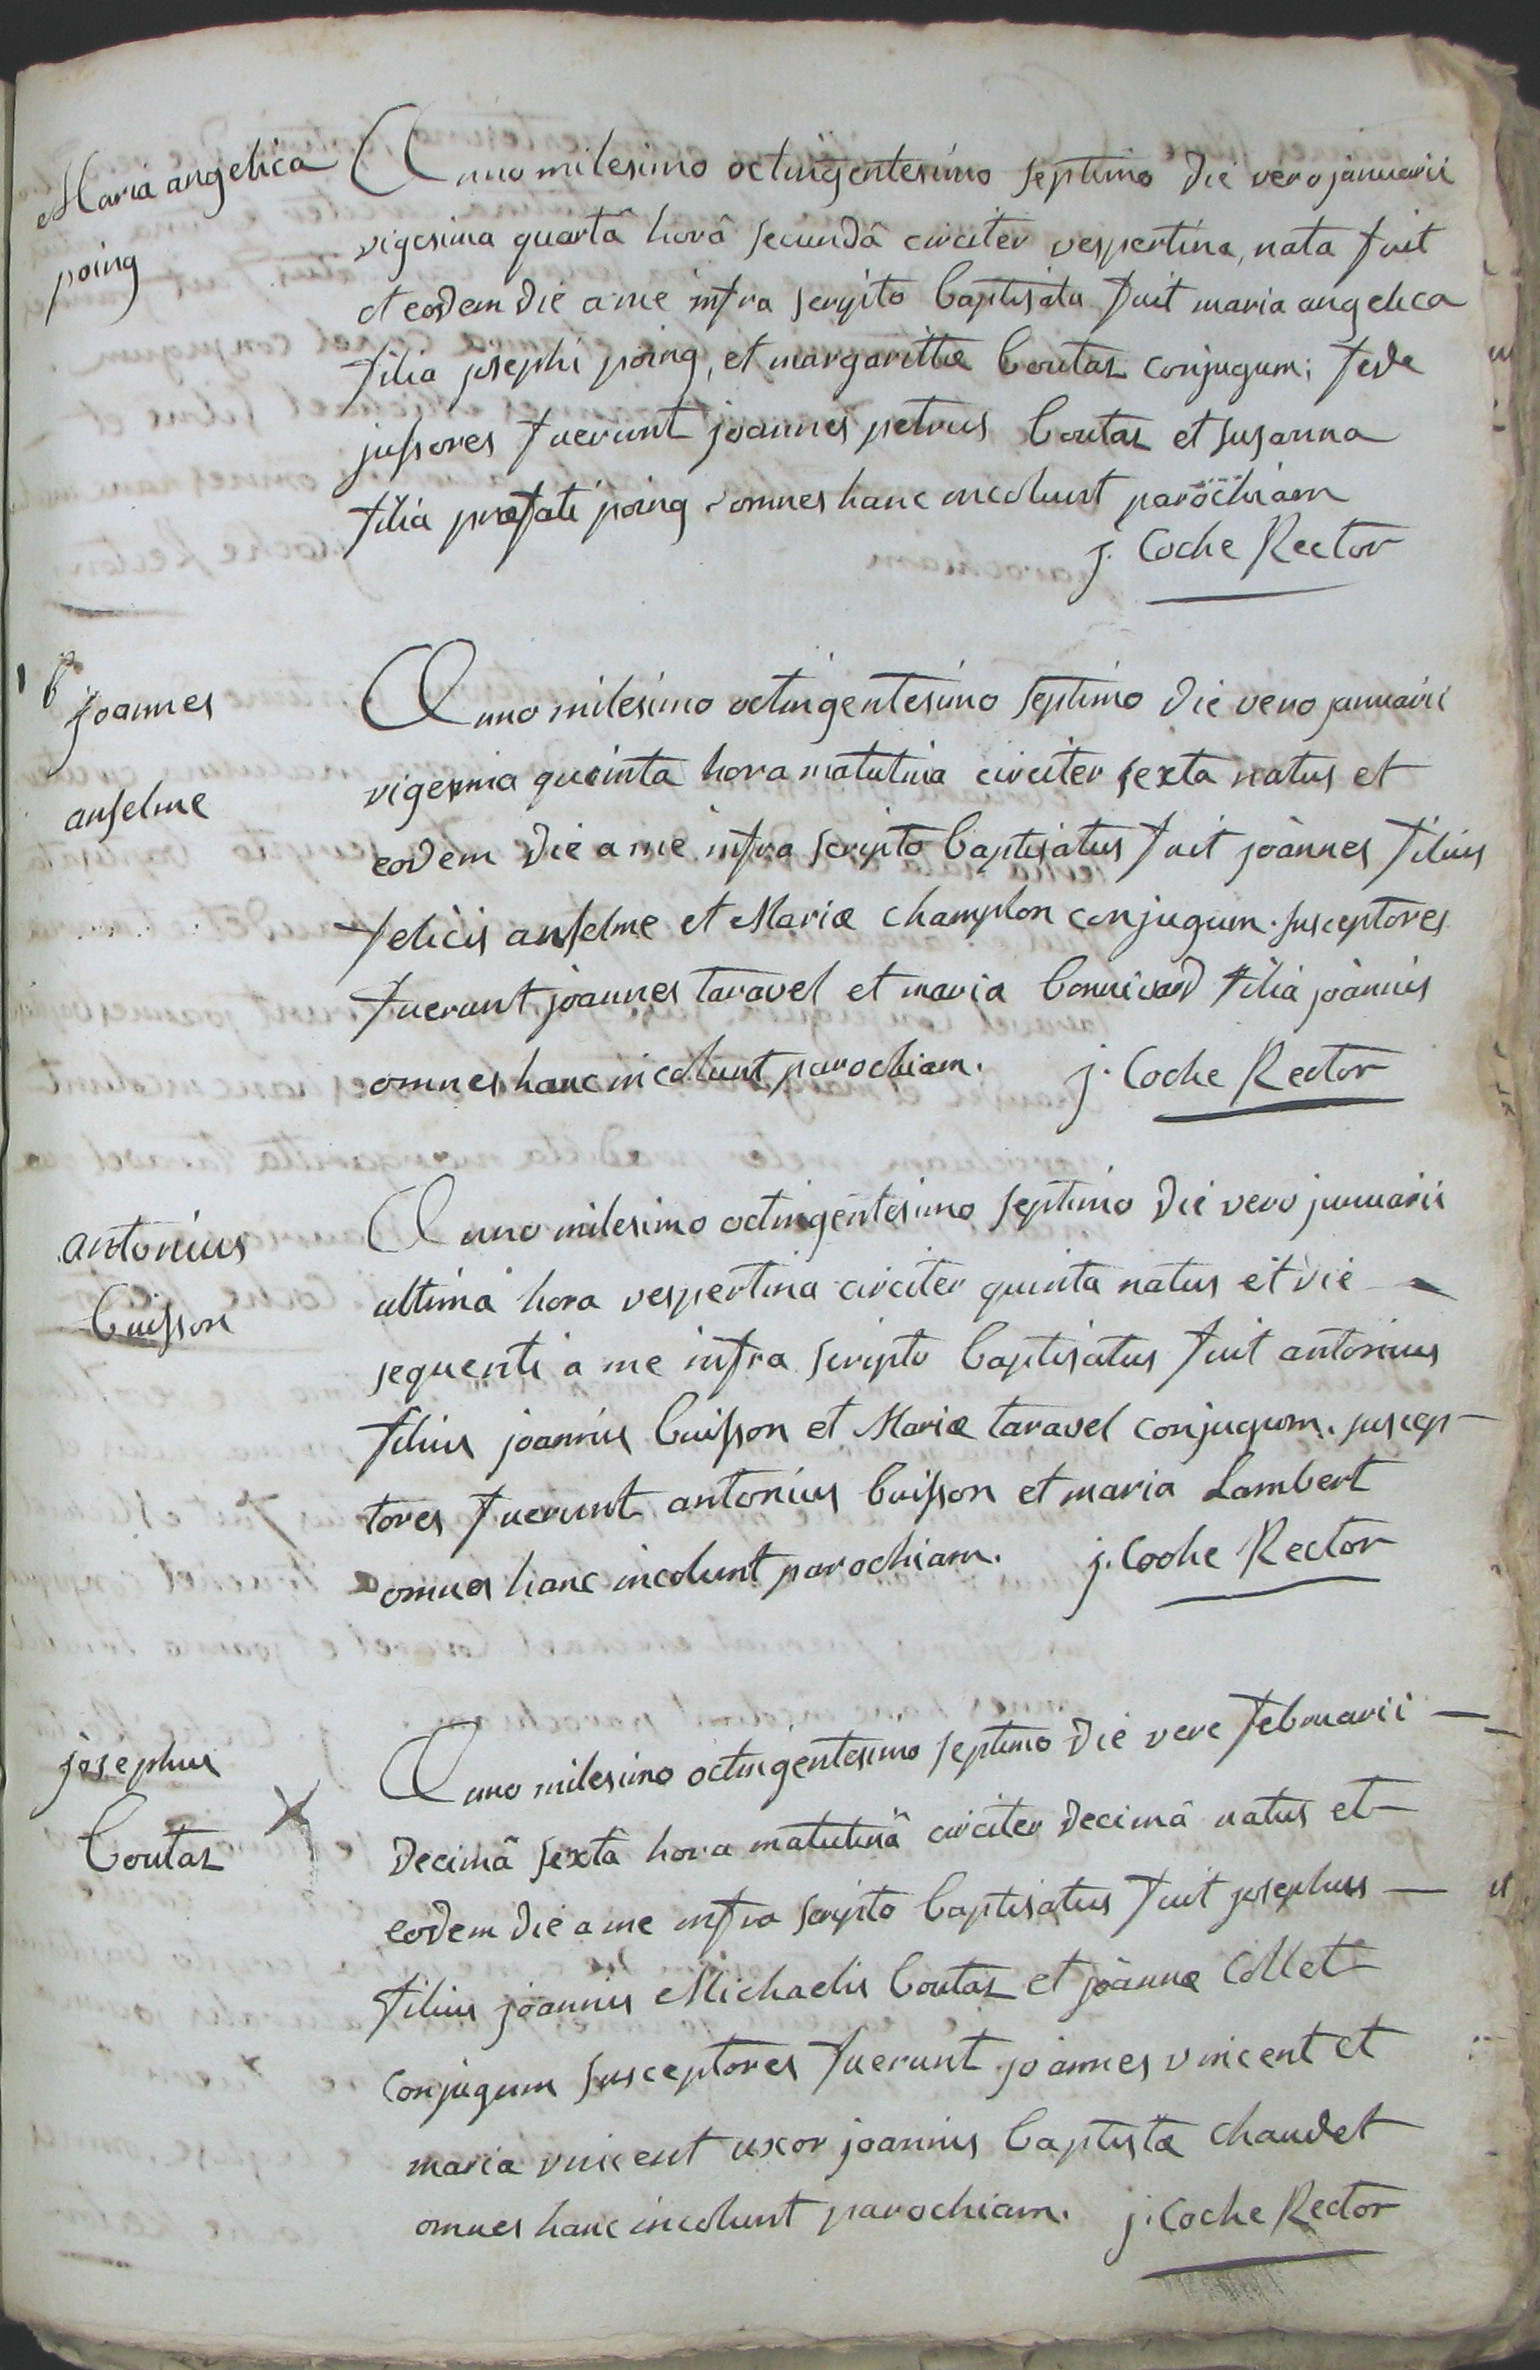 Maria angelica
poing
Anno milesimo octingentesimo septimo die vero januarii
vigesima quartâ horâ secundâ circiter vespertina, nata fuit
et eodem die a me infra scripto baptisata fuit maria angelica
filia josephi poing, et margarittæ boutaz conjugum; fide
jussores fuerunt joannes petrus boutaz et susanna
filia præfati poing omnes hanc incolunt parochiam
j. Coche Rector
joannes
anselme
Anno milesimo octingentesimo septimo die vero januarii
vigesima quinta hora matutina circiter sexta natus et
eodem die a me infra scripto baptisatus fuit joannes filius
felicis anselme et Mariæ champlon conjugum. susceptores
fuerunt joannes taravel et maria bonnivard filia joannis
omnes hanc incolunt parochiam. j. Coche Rector
antonius
buisson
Anno milesimo octingentesimo septimo die vero januarii
ultima hora vespertina circiter quinta natus et die
sequenti a me infra scripto baptisatus fuit antonius
filius joannis buisson et Mariæ taravel conjugum. suscep-
tores fuerunt antonius buisson et maria Lambert
omnes hanc incolunt parochiam. j. Coche Rector
josephus
boutaz
Anno milesimo octingentesimo septimo die vero februarii
decimâ sextâ hora matutinâ circiter decimâ natus et
eodem die a me infra scripto baptisatus fuit josephus
filius joannis Michaelis boutaz et joannæ Collet
conjugum susceptores fuerunt joannes vincent et
maria vincent uxor joannis baptistæ chaudet
omnes hanc incolunt parochiam. j. Coche Rector